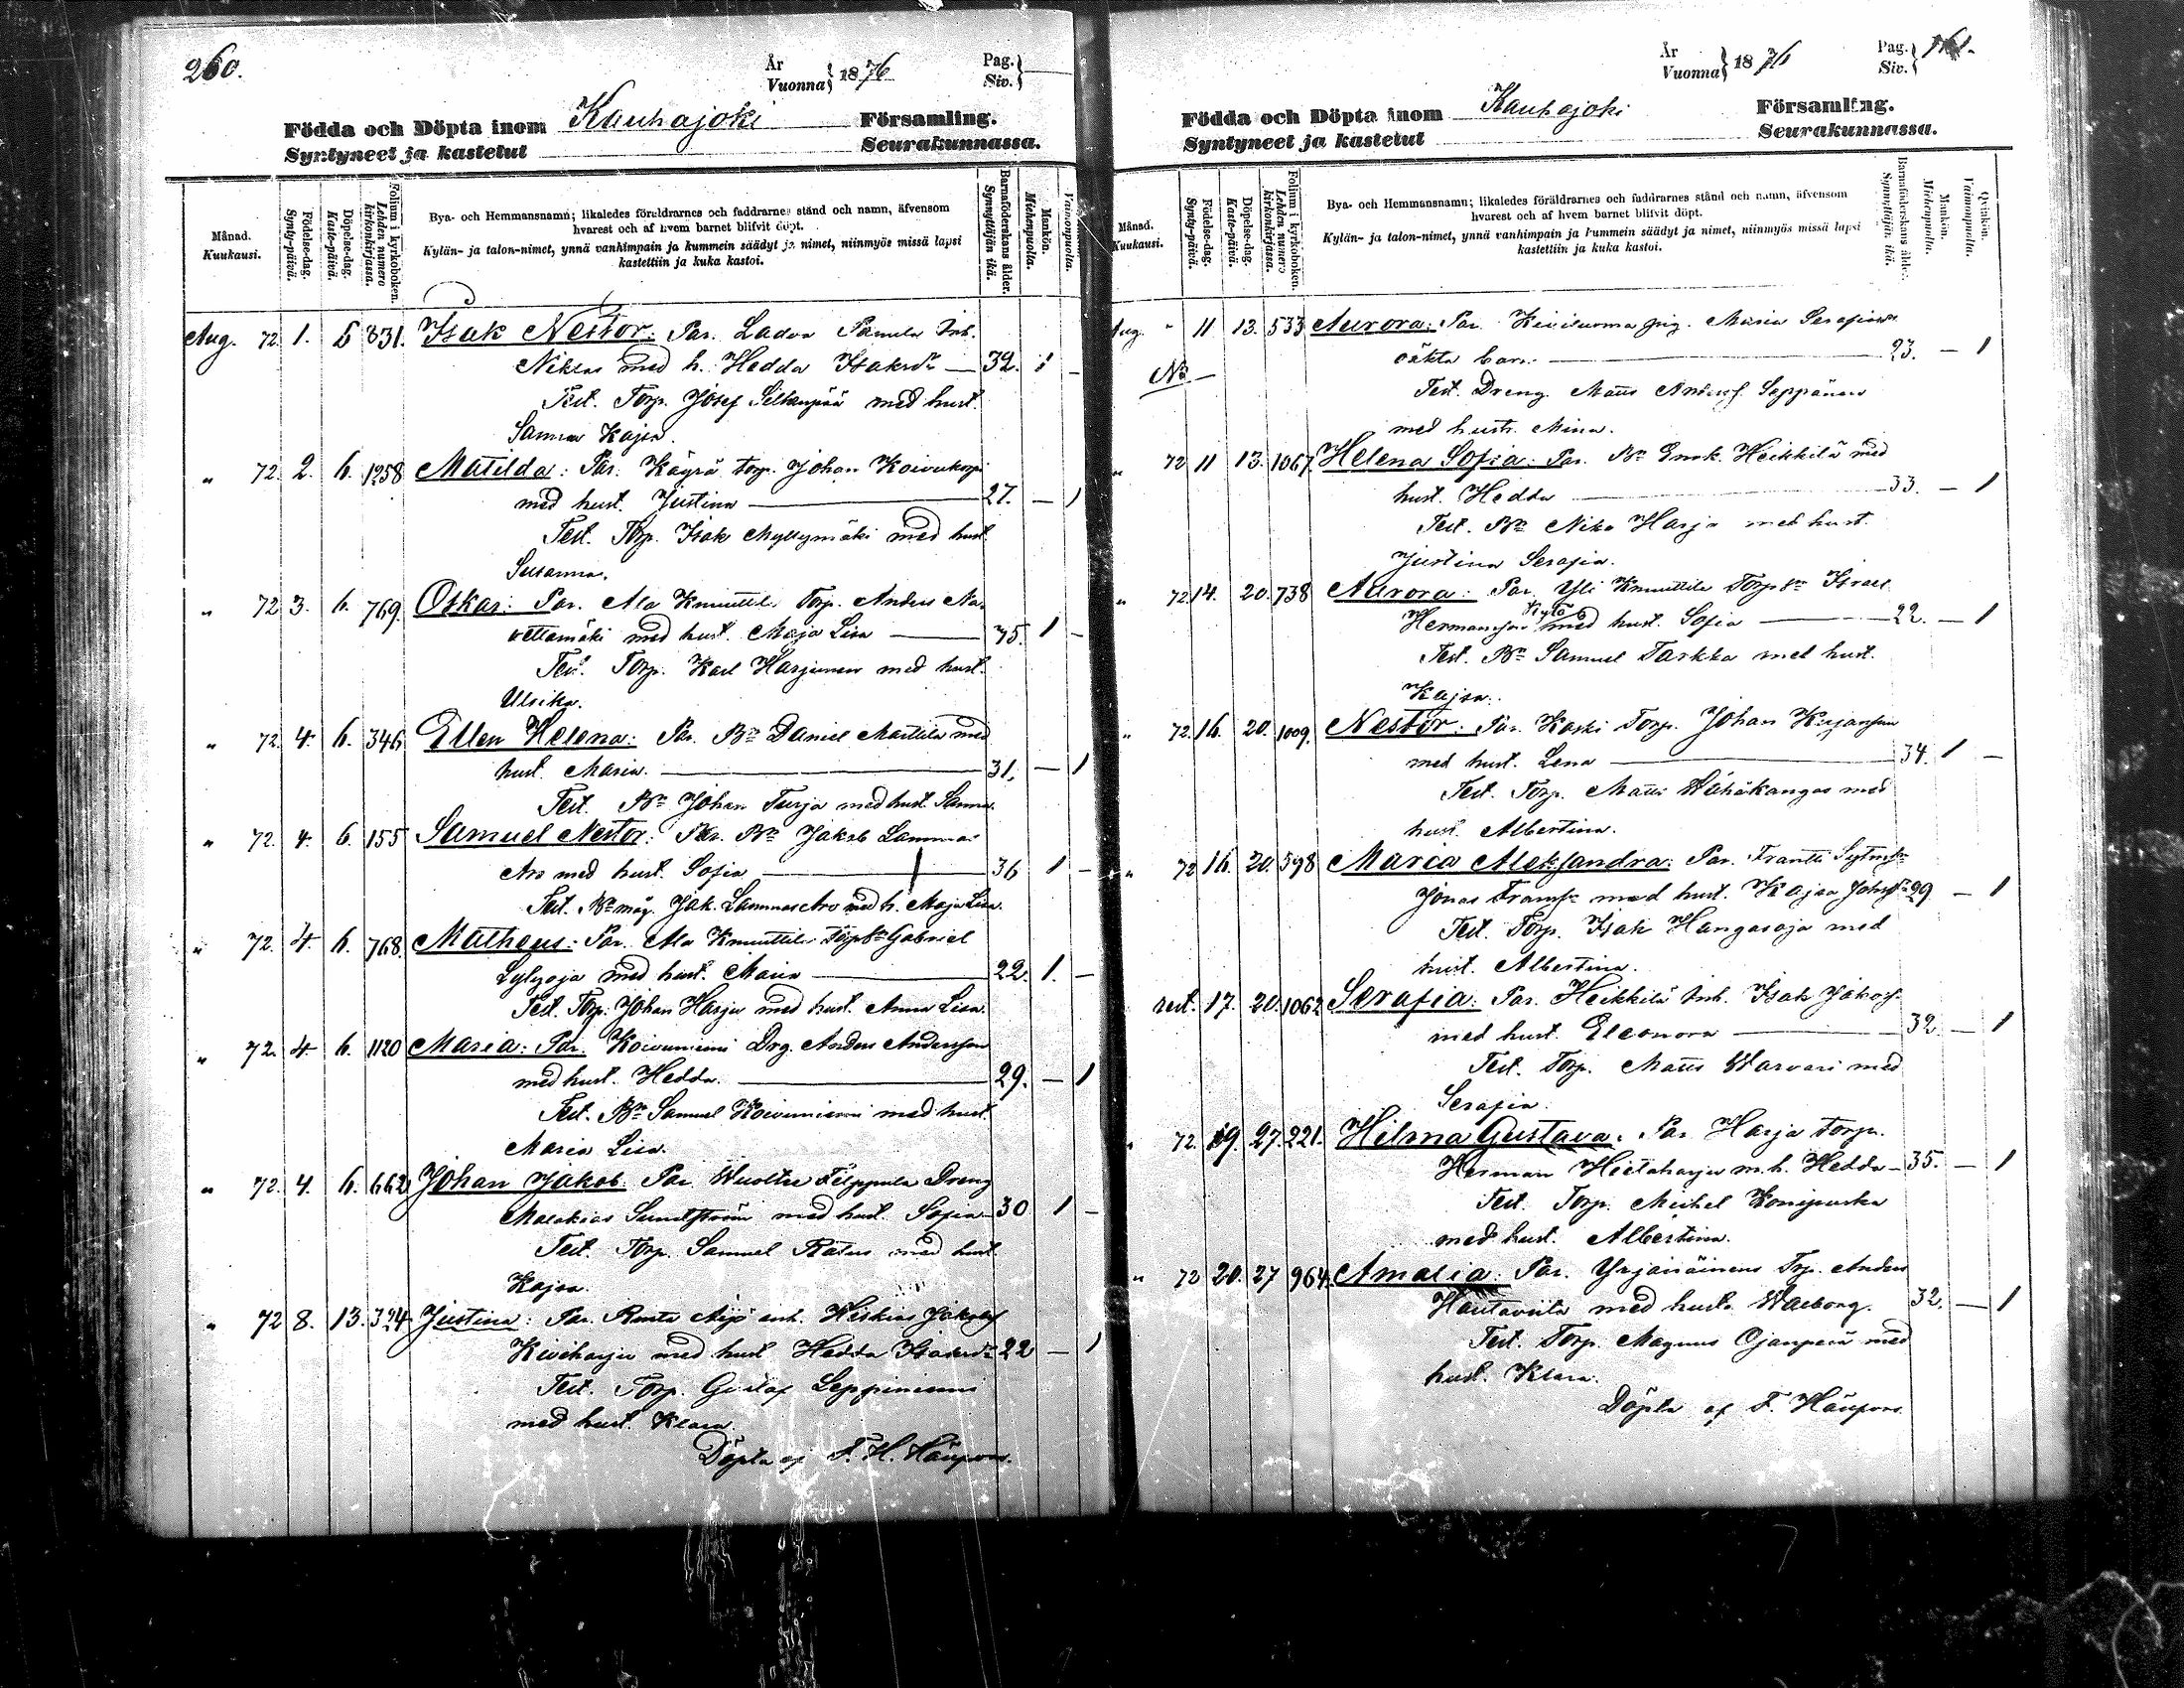 260.
År
Vuonna} 1876
Pag.
Siv.}
Födda och Döpta inom Kauhajoki Församling.
Syntyneet ja kastetut Seurakunnassa.
Månad.
Kuukausi.
Födelse-dag.
Synty-päivä.
Döpelse-dag.
Kaste-päivä.
Folium i kyrkoboken.
Lehden numero kirkonkirjassa.
Bya- och Hemmansnamn; likaledes föräldrarnes och faddrarnes stånd och namn, äfvensom
hvarest och af hvem barnet blifvit döpt.
Kylän- ja talon-nimet, ynnä vanhimpain ja kummein säädyt ja nimet, niinmyös missä lapsi
kastettiin ja kuka kastoi.
Barnaföderskans ålder.
Synnyttäjän ikä.
Mankön.
Miehenpuolta.
Vaimonpuolta.
Aug. 72. 1. 6 831. Isak Nestor: Par. Ladva Inh.
Niklas med h. Hedda Isaksdr — 39. 1 –
Test. Torp. Josef med hust.
Sanna Kajsa.
" 72. 2. 6. 1258 Matilda: Par. Käyrä torp. Johan Koivukorpi
med hust. Justina — 27. – 1
Test. Torp. Isak Myllymäki med hust.
Susanna.
" 72 3. 6. 769. Oskar: Par. Ala Knuuttila Torp. Anders Na-
vettamäki med hust. Maja Lisa — 35. 1 –
Test. Torp. Karl Harjunen med hust.
Ulrika.
" 72. 4. 6. 346 Ellen Helena: Par. Bn Daniel Marttila med
hust. Maria. — 31. – 1
Test. Bn Johan Turja med hust. Sanna.
" 72. 4. 6. 155 Samuel Nestor: Par. Bn Jakob Lammas
Aro med hust. Sofia — 36 1 –
Test. Bn måg. Jak. Lammas Aro med h. Maja Lisa.
" 72. 4. 6. 768. Matheus: Par. Ala Knuuttila Torpsn Gabriel
Lylyoja med hust. Maria — 22. 1. –
Test. Torp. Johan Harju med hust. Anna Lisa.
" 72. 4 6. 1120 Maria: Par. Koivuniemi Drg. Anders Andersson
med hust. Hedda. — 29. – 1
Test. Bn Samuel Koivuniemi med hust.
Maria Lisa.
" 72. 4. 6. 662 Johan Jakob. Par. Filppula Dreng
Malakias Sundström med hust. Sofia 30 1 –
Test. Torp. Samuel med hust.
Kajsa.
" 72 8. 13. 324 Justina: Par. Äijö inh. Heskias Jakobss
Kiviharju med hust Hedda Isaksdr 22 – 1
Test. Torp. Gustaf Leppiniemi
med hust. Klara.
Döpta af F. H.
År
Vuonna} 1876
Pag.
Siv.}
Födda och Döpta inom Kauhajoki Församling.
Syntyneet ja kastetut Seurakunnassa.
Månad.
Kuukausi.
Födelse-dag.
Synty-päivä.
Döpelse-dag.
Kaste-päivä.
Folium i kyrkoboken.
Lehden numero kirkonkirjassa.
Bya- och Hemmansnamn; likaledes föräldrarnes och faddrarnes stånd och namn, äfvensom
hvarest och af hvem barnet blifvit döpt.
Kylän- ja talon-nimet, ynnä vanhimpain ja kummein säädyt ja nimet, niinmyös missä lapsi
kastettiin ja kuka kastoi.
Barnaföderskans ålder.
Synnyttäjän ikä.
Mankön.
Miehenpuolta.
Qvinkön.
Vaimonpuolta.
Aug. " 11 13. 533 Aurora: Par. Kiviluoma pig. Maria Serafias
oäkta barn. — 23. – 1
Test. Dreng. Matts Andersf. Seppänen
med hustr. Mina.
" 72 11 13. 1067 Helena Sofia: Par. Bn Enok Heikkilä med
hust. Hedda — 33. – 1
Test. Bn Niko Harja med hust.
Justina Serafia.
" 72 14. 20. 738 Aurora: Par. Yli Knuuttila Torpsn Israel
Hermansson med hust. Sofia — 22. – 1
Test. Bn Samuel Tarkka med hust.
Kajsa.
" 72. 16. 20. 1009. Nestor: Par. Koski Torp. Johan
med hust. Lena — 34. 1 –
Test. Torp. Matts Wähäkangas med
hust. Albertina.
" 72 16. 20. 598 Maria Aleksandra: Par. Frantti
Jonas med hust. Kajsa 29 – 1
Test. Torp. Isak Hangasoja med
hust. Albertina.
rest. 17. 20. 1062 Serafia: Par. Heikkilä Inh. Isak Jakobs.
med hust. Eleonora — 32. – 1
Test. Torp. Matts Warvari med
Serafia.
" 72. 19. 27. 221. Hilma Gustava: Par. Harja torp.
Herman Hietaharju m. h. Hedda — 35. – 1
Test. Torp. Mickel
med hust. Albertina.
" 72 20. 27 964 Amalia: Par. Yrjänäinen Trp. Anders
Hautaviita med hustr. Walborg. 32. – 1
Test. Torp. Magnus Ojanperä med
hust. Klara.
Döpta af F.